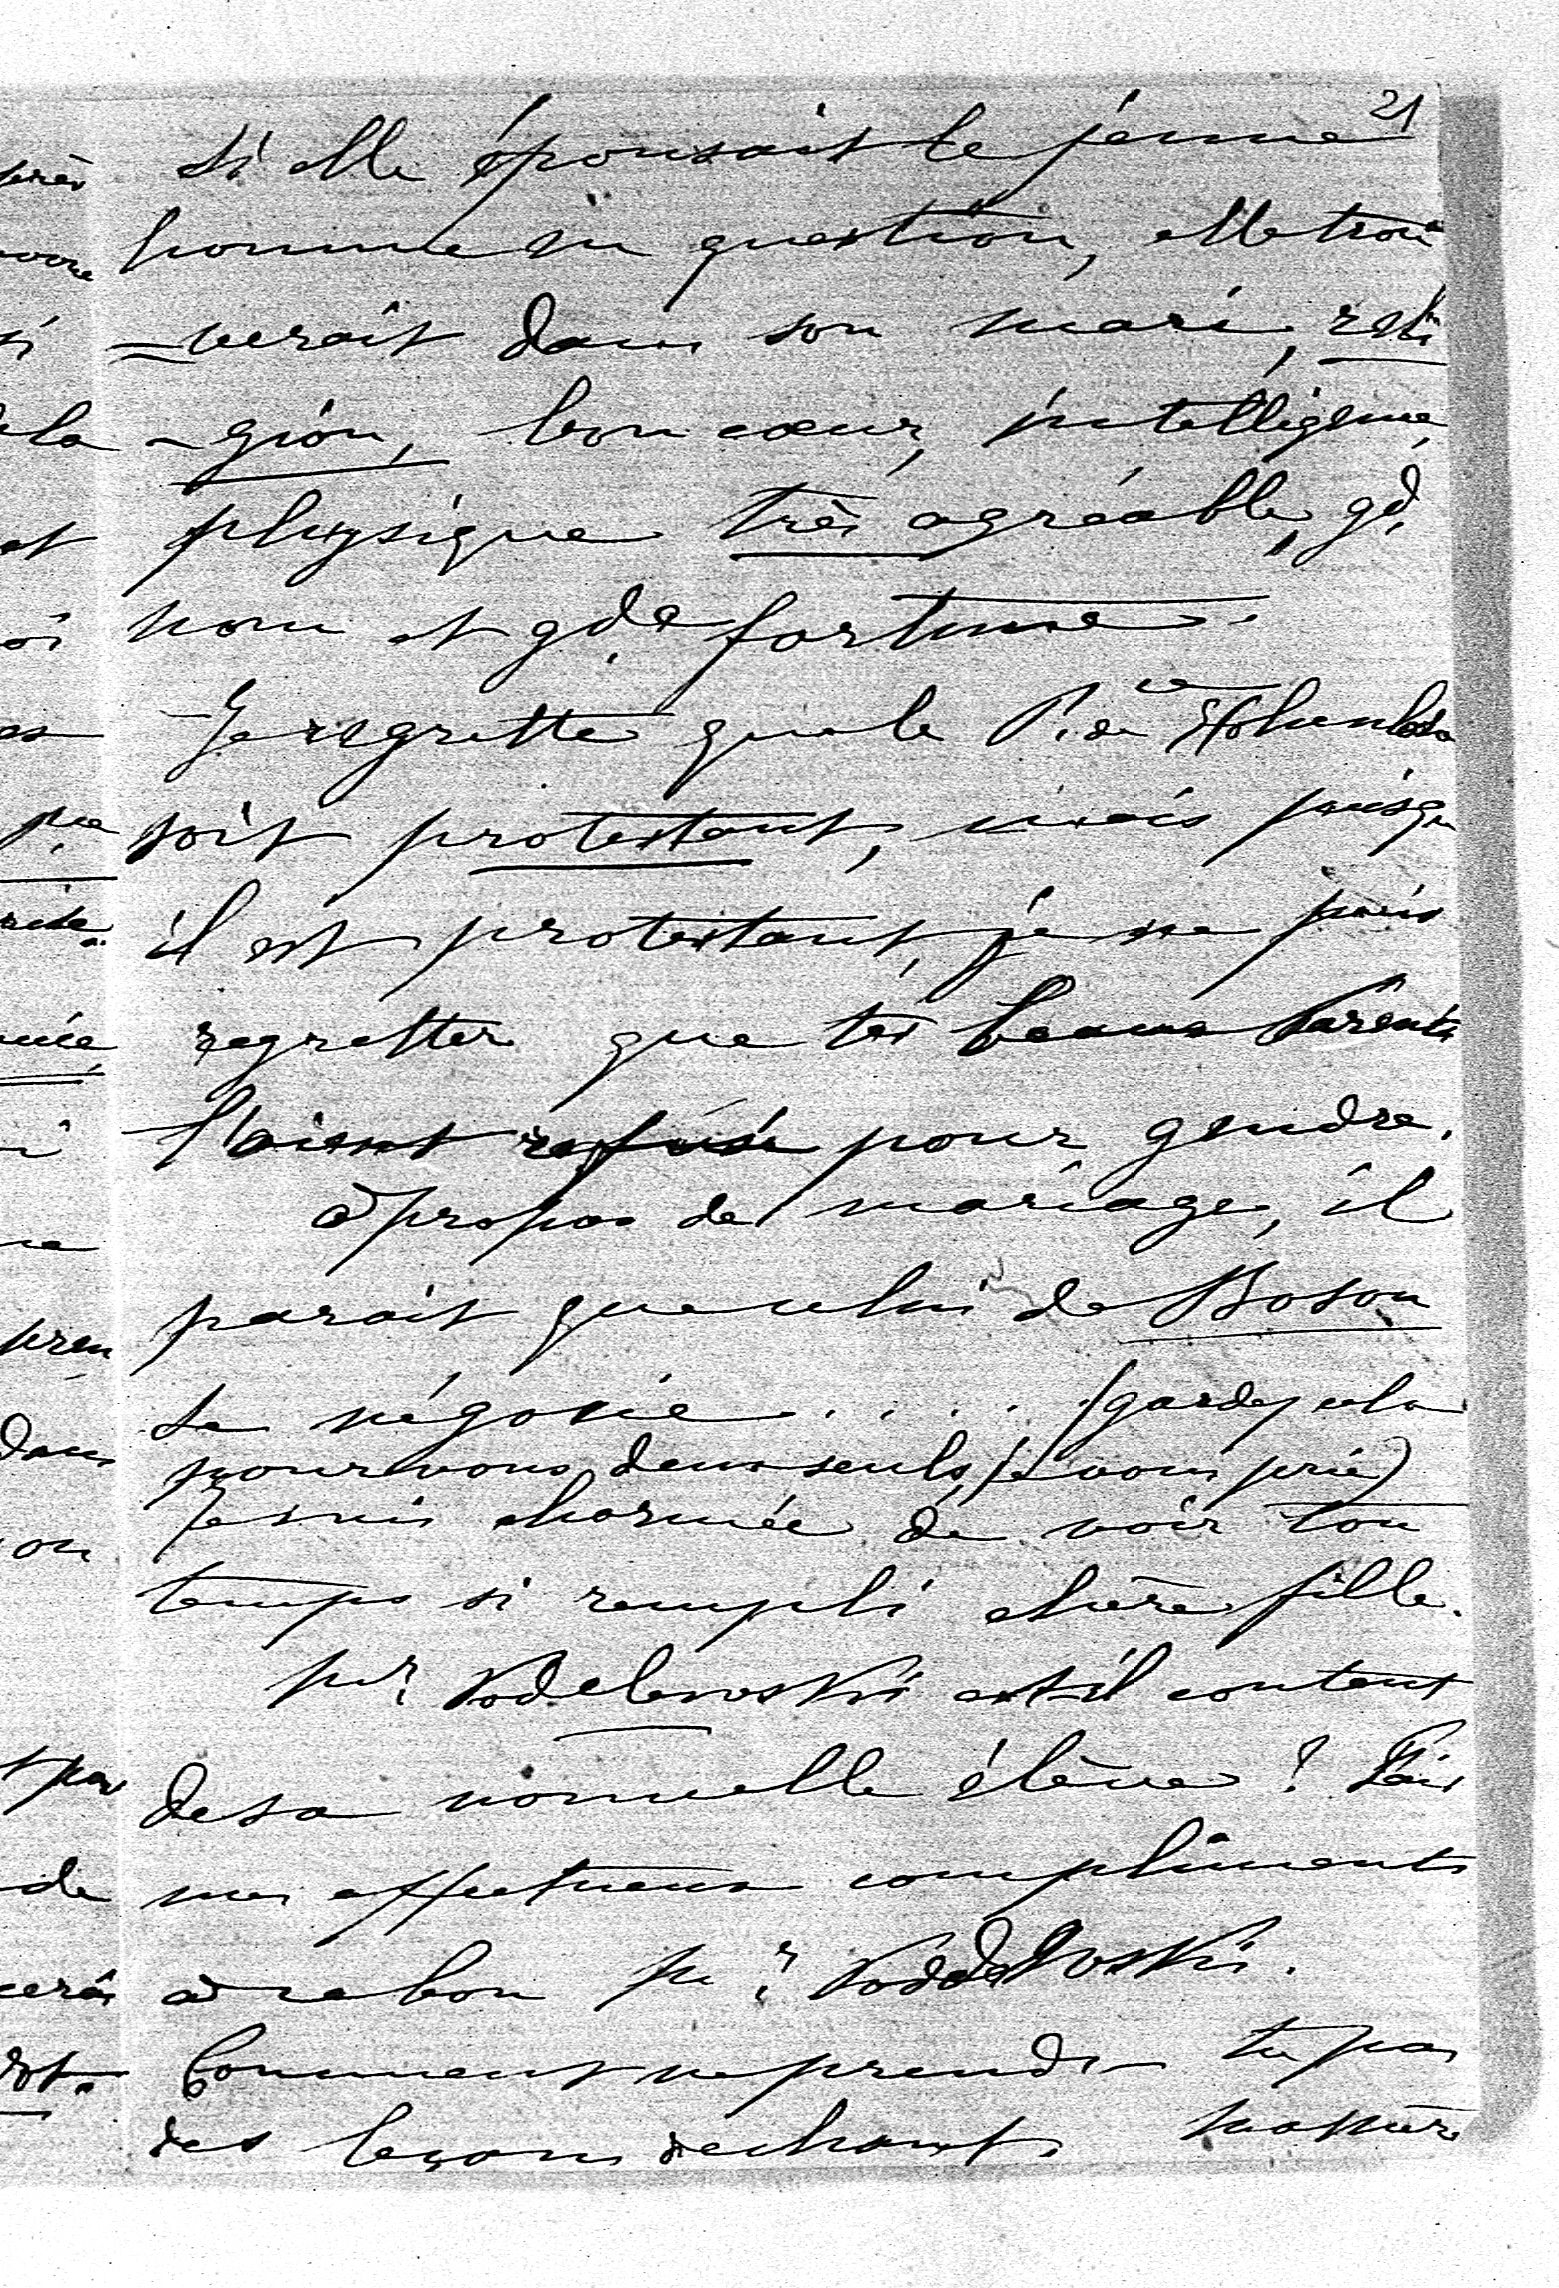 21
si elle épousait le jeune
homme en question, elle trou
-verait dans son mari, reli
-gion, bon cœur, intelligence,
physique très agréable, gd.
nom et gde. fortune.
Je regrette que le Pce de Hohenlohe
soit protestant, mais puisqu
il est protestant, je ne puis
regretter que tes beaux Parents
l'aient refusé pour gendre.
à propos de mariage, il
parait que celui de Boson
se négocie..... (gardez cela
pour vous deux seuls, je vous prie)
Je suis charmée de voir ton
temps si rempli chère fille.
Mr. est-il content
de sa nouvelle élève ? Fais
mes affectueux compliments
à ce bon Mr.
Comment ne prends-tu pas
des leçons de chant,